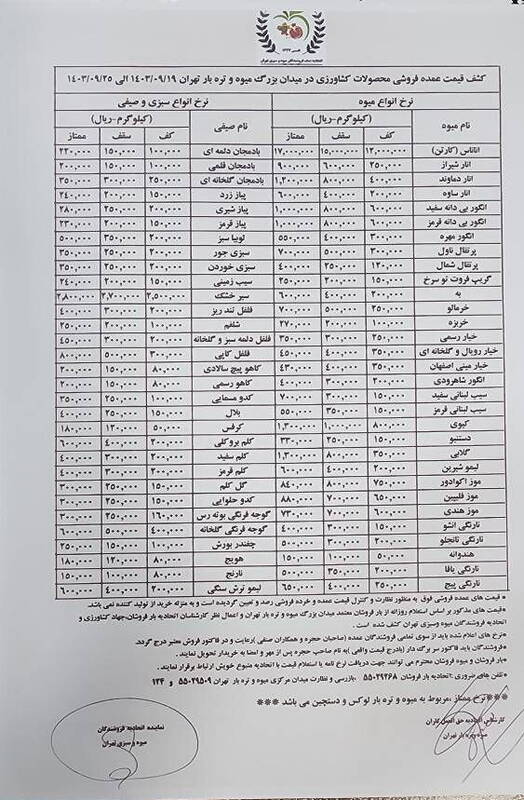 اتحادیه صنف فروشندگان میوه و سبزی تهران
کشف قیمت عمده فروشی محصولات کشاورزی در میدان بزرگ میوه و تره بار تهران ۱۴۰۳/۰۹/۱۹ الی ۱۴۰۳/۰۹/۲۵
نرخ انواع میوه نرخ انواع سبزی و صیفی
نام میوه (کیلوگرم-ریال) نام صیفی (کیلوگرم-ریال)
کف سقف ممتاز کف سقف ممتاز
اناناس (کارتن) ۱۲,۰۰۰,۰۰۰ ۱۵,۰۰۰,۰۰۰ ۱۷,۰۰۰,۰۰۰ بادمجان دلمه ای ۱۰۰,۰۰۰ ۱۵۰,۰۰۰ ۲۲۰,۰۰۰
انار شیراز ۲۵۰,۰۰۰ ۶۰۰,۰۰۰ ۹۰۰,۰۰۰ بادمجان قلمی ۱۰۰,۰۰۰ ۱۵۰,۰۰۰ ۲۰۰,۰۰۰
انار دماوند ۴۰۰,۰۰۰ ۸۰۰,۰۰۰ ۱,۲۰۰,۰۰۰ بادمجان گلخانه ای ۲۵۰,۰۰۰ ۳۰۰,۰۰۰ ۳۵۰,۰۰۰
انار ساوه ۲۰۰,۰۰۰ ۴۰۰,۰۰۰ ۶۰۰,۰۰۰ پیاز زرد ۱۵۰,۰۰۰ ۲۰۰,۰۰۰ ۲۴۰,۰۰۰
انگور بی دانه سفید ۶۰۰,۰۰۰ ۸۰۰,۰۰۰ ۱,۰۰۰,۰۰۰ پیاز شیری ۲۰۰,۰۰۰ ۲۵۰,۰۰۰ ۲۸۰,۰۰۰
انگور بی دانه قرمز ۶۰۰,۰۰۰ ۸۰۰,۰۰۰ ۱,۰۰۰,۰۰۰ پیاز قرمز ۱۵۰,۰۰۰ ۲۰۰,۰۰۰ ۲۳۰,۰۰۰
انگور مهره ۳۰۰,۰۰۰ ۴۰۰,۰۰۰ ۵۵۰,۰۰۰ لوبیا سبز ۲۰۰,۰۰۰ ۳۵۰,۰۰۰ ۵۰۰,۰۰۰
پرتقال ناول ۳۰۰,۰۰۰ ۵۰۰,۰۰۰ ۷۰۰,۰۰۰ سبزی جور ۲۰۰,۰۰۰ ۲۵۰,۰۰۰ ۳۵۰,۰۰۰
پرتقال شمال ۱۲۰,۰۰۰ ۲۵۰,۰۰۰ ۴۰۰,۰۰۰ سبزی خوردن ۲۰۰,۰۰۰ ۲۵۰,۰۰۰ ۳۵۰,۰۰۰
گریپ فروت تو سرخ سیب زمینی ۱۵۰,۰۰۰ ۲۰۰,۰۰۰ ۲۴۰,۰۰۰
به ۲۰۰,۰۰۰ ۴۰۰,۰۰۰ ۶۰۰,۰۰۰ سیر خشک ۲,۵۰۰,۰۰۰ ۲,۷۰۰,۰۰۰ ۲,۸۰۰,۰۰۰
خرمالو ۲۵۰,۰۰۰ ۵۰۰,۰۰۰ ۷۰۰,۰۰۰ فلفل تند ریز ۲۰۰,۰۰۰ ۳۰۰,۰۰۰ ۴۰۰,۰۰۰
خربزه ۱۰۰,۰۰۰ ۲۰۰,۰۰۰ ۲۷۰,۰۰۰ شلغم ۱۰۰,۰۰۰ ۲۰۰,۰۰۰ ۲۵۰,۰۰۰
خیار رسمی ۲۵۰,۰۰۰ ۳۵۰,۰۰۰ ۴۰۰,۰۰۰ فلفل دلمه سبز و گلخانه ۲۰۰,۰۰۰ ۳۰۰,۰۰۰ ۴۵۰,۰۰۰
خیار رویال و گلخانه ای ۳۵۰,۰۰۰ ۴۰۰,۰۰۰ ۴۵۰,۰۰۰ فلفل کاپی ۳۰۰,۰۰۰ ۵۰۰,۰۰۰ ۸۰۰,۰۰۰
خیار مینی اصفهان ۳۵۰,۰۰۰ ۴۰۰,۰۰۰ ۴۳۰,۰۰۰ کاهو پیچ سالادی ۸۰,۰۰۰ ۱۵۰,۰۰۰ ۲۰۰,۰۰۰
انگور شاهرودی ۲۰۰,۰۰۰ ۳۰۰,۰۰۰ ۴۰۰,۰۰۰ کاهو رسمی ۸۰,۰۰۰ ۱۵۰,۰۰۰ ۲۰۰,۰۰۰
سیب لبنانی سفید ۱۵۰,۰۰۰ ۳۰۰,۰۰۰ ۷۰۰,۰۰۰ کدو مسمایی ۲۰۰,۰۰۰ ۲۵۰,۰۰۰ ۳۵۰,۰۰۰
سیب لبنانی قرمز ۱۵۰,۰۰۰ ۳۵۰,۰۰۰ ۵۵۰,۰۰۰ بلال ۱۵۰,۰۰۰ ۲۵۰,۰۰۰ ۴۰۰,۰۰۰
کیوی ۸۰۰,۰۰۰ ۱,۰۰۰,۰۰۰ ۱,۳۰۰,۰۰۰ کرفس ۵۰,۰۰۰ ۱۲۰,۰۰۰ ۱۸۰,۰۰۰
دستنبو ۱۵۰,۰۰۰ ۲۵۰,۰۰۰ ۳۳۰,۰۰۰ کلم بروکلی ۲۰۰,۰۰۰ ۴۰۰,۰۰۰ ۶۰۰,۰۰۰
گلابی ۳۵۰,۰۰۰ ۸۰۰,۰۰۰ ۱,۳۰۰,۰۰۰ کلم سفید ۲۰۰,۰۰۰ ۳۰۰,۰۰۰ ۴۰۰,۰۰۰
لیمو شیرین ۲۰۰,۰۰۰ ۴۰۰,۰۰۰ ۶۰۰,۰۰۰ کلم قرمز ۲۰۰,۰۰۰ ۳۰۰,۰۰۰ ۴۰۰,۰۰۰
موز اکوادور ۷۵۰,۰۰۰ ۸۰۰,۰۰۰ ۸۴۰,۰۰۰ گل کلم ۱۵۰,۰۰۰ ۲۵۰,۰۰۰ ۳۰۰,۰۰۰
موز فلیپین ۶۵۰,۰۰۰ ۷۰۰,۰۰۰ ۸۸۰,۰۰۰ کدو حلوایی ۱۵۰,۰۰۰ ۲۵۰,۰۰۰ ۳۰۰,۰۰۰
موز هندی ۶۰۰,۰۰۰ ۷۰۰,۰۰۰ ۷۳۰,۰۰۰ گوجه فرنگی بوته رس ۱۶۰,۰۰۰ ۲۵۰,۰۰۰ ۳۰۰,۰۰۰
نارنگی انشو ۱۵۰,۰۰۰ ۳۰۰,۰۰۰ ۴۰۰,۰۰۰ گوجه فرنگی گلخانه ۲۰۰,۰۰۰ ۴۰۰,۰۰۰ ۵۰۰,۰۰۰
نارنگی تانجلو ۲۰۰,۰۰۰ ۳۰۰,۰۰۰ ۵۰۰,۰۰۰ چغندر بورش ۱۰۰,۰۰۰ ۱۵۰,۰۰۰ ۲۵۰,۰۰۰
هندوانه ۵۰,۰۰۰ ۱۰۰,۰۰۰ ۱۵۰,۰۰۰ هویج ۸۰,۰۰۰ ۱۲۰,۰۰۰ ۱۸۰,۰۰۰
نارنگی یافا ۲۰۰,۰۰۰ ۳۵۰,۰۰۰ ۵۰۰,۰۰۰ نارنج ۸۰,۰۰۰ ۱۰۰,۰۰۰ ۱۵۰,۰۰۰
نارنگی پیج ۲۵۰,۰۰۰ ۴۰۰,۰۰۰ ۶۵۰,۰۰۰ لیمو ترش سنگی ۲۰۰,۰۰۰ ۴۰۰,۰۰۰ ۶۰۰,۰۰۰
* قیمت های عمده فروشی فوق به منظور نظارت و کنترل قیمت عمده و خرده فروشی رصد و تعیین گردیده است و به منزله خرید از تولید کننده نمی باشد.
* قیمت های مذکور بر اساس استعلام روزانه از بار فروشان معتمد میدان بزرگ میوه و تره بار تهران و اعمال نظر کارشناسان اتحادیه بار فروشان،جهاد کشاورزی و
اتحادیه فروشندگان میوه وسبزی تهران کشف شده است .
*نرخ های اعلام شده باید از سوی تمامی فروشندگان عمده (صاحبان حجره و همکاران صنفی )رعایت و در فاکتور فروش معتبر درج گردد.
*فروشندگان باید فاکتور سر برگ دار (بادرج قیمت واقعی )به نام صاحب حجره پس از مهر و امضا به خریدار تحویل نمایند .
*بار فروشان و میوه فروشان محترم می توانند جهت دریافت نرخ نامه یا استعلام قیمت با اتحادیه متبوع خویش ارتباط برقرار نمایند .
*تلفن های ضروری :اتحادیه بار فروشان ۵۵۰۲۹۲۶۸ ،بازرسی و نظارت میدان مرکزی میوه و تره بار تهران ۵۵۰۲۹۵۰۹ و ۱۲۴
***نرخ ممتاز ،مربوط به میوه و تره بار لوکس و دستچین می باشد ***
نماینده اتحادیه فروشندگان
میوه و سبزی تهران
کارشناس اتحادیه حق العمل کاران
میوه و تره بار تهران